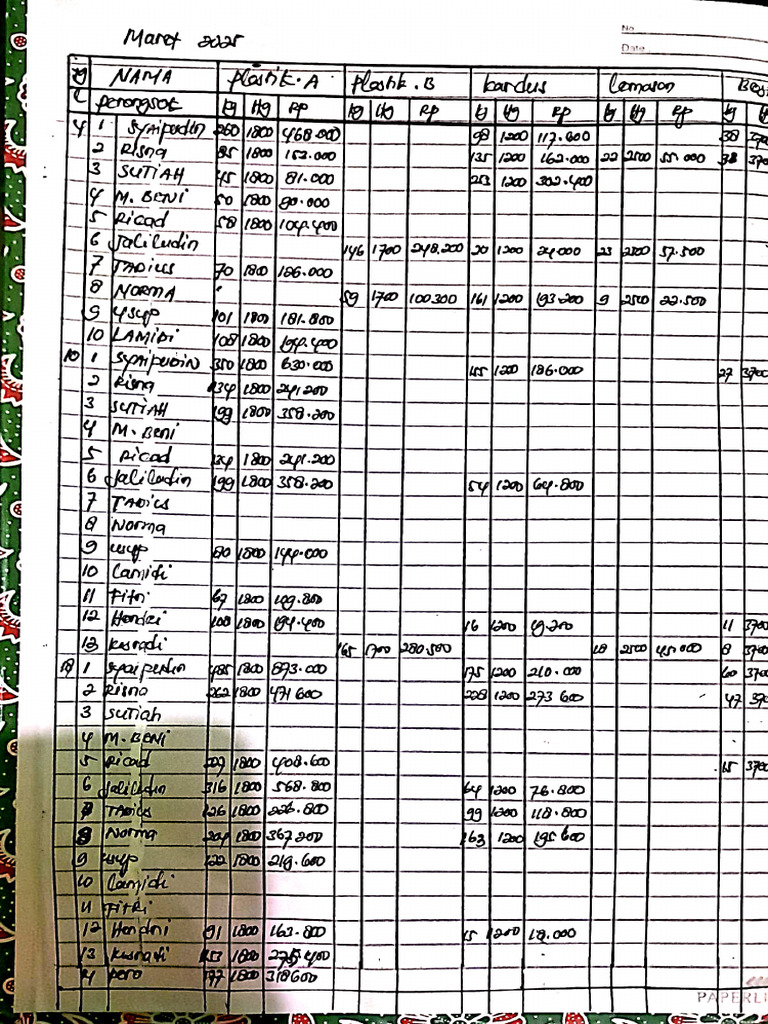 No
Date
Maret 2025
NAMA Plastik.A Plastik.B kardus Lemason Besi
perongsok kg Hg Rp kg Hg Rp kg Hg Rp kg Hg Rp kg
4 1 Syaipudin 260 1800 468.000 98 1200 117.600 38 3700
2 Risna 85 1800 153.000 135 1200 162.000 22 2500 55.000 38 370
3 SUTIAH 45 1800 81.000 253 1200 302.400
4 M. BENI 50 1800 90.000
5 Ricad 58 1800 104.400
6 Jaliludin 146 1700 248.200 20 1200 24.000 23 2500 57.500
7 TADIUS 70 1800 126.000
8 NORMA 59 1700 100300 161 1200 193.200 9 2500 22.500
9 Ysup 101 1800 181.800
10 LAMIDI 108 1800 194.400
10 1 Syaipudin 350 1800 630.000 1200 186.000 27 3700
2 Risna 134 1800 241200
3 SUTIAH 199 1800 358.200
4 M. Beni
5 Ricad 134 1800 241.200
6 Jaliludin 199 1800 358.200 54 1200 64.800
7 TADIUS
8 Norma
9 usup 80 1800 144.000
10 Lamidi
11 Fitri 1800
12 Hendri 108 1800 194.400 16 1200 19.200 11 3700
13 kusnadi 165 1700 280.500 18 2500 45.000 8 3700
18 1 Syaipudin 485 1800 873.000 175 1200 210.000 60 3700
2 Risna 262 1800 471600 228 1200 273600 47 370
3 Sutiah
4 M. BENI
5 Ricad 227 1800 408.600 15 3700
6 Jaliludin 316 1800 568.800 64 1200 76.800
7 TADIUS 126 1800 226.800 99 1200 118.800
8 Norma 204 1800 367200 163 1200 195600
9 usup 122 1800 219.600
10 Lamidi
11 Fitri
12 Hendri 91 1800 163.800 15 1200 18.000
13 kusnadi 153 1800 275.400
14 pero 177 1800 318600
PAPERLI